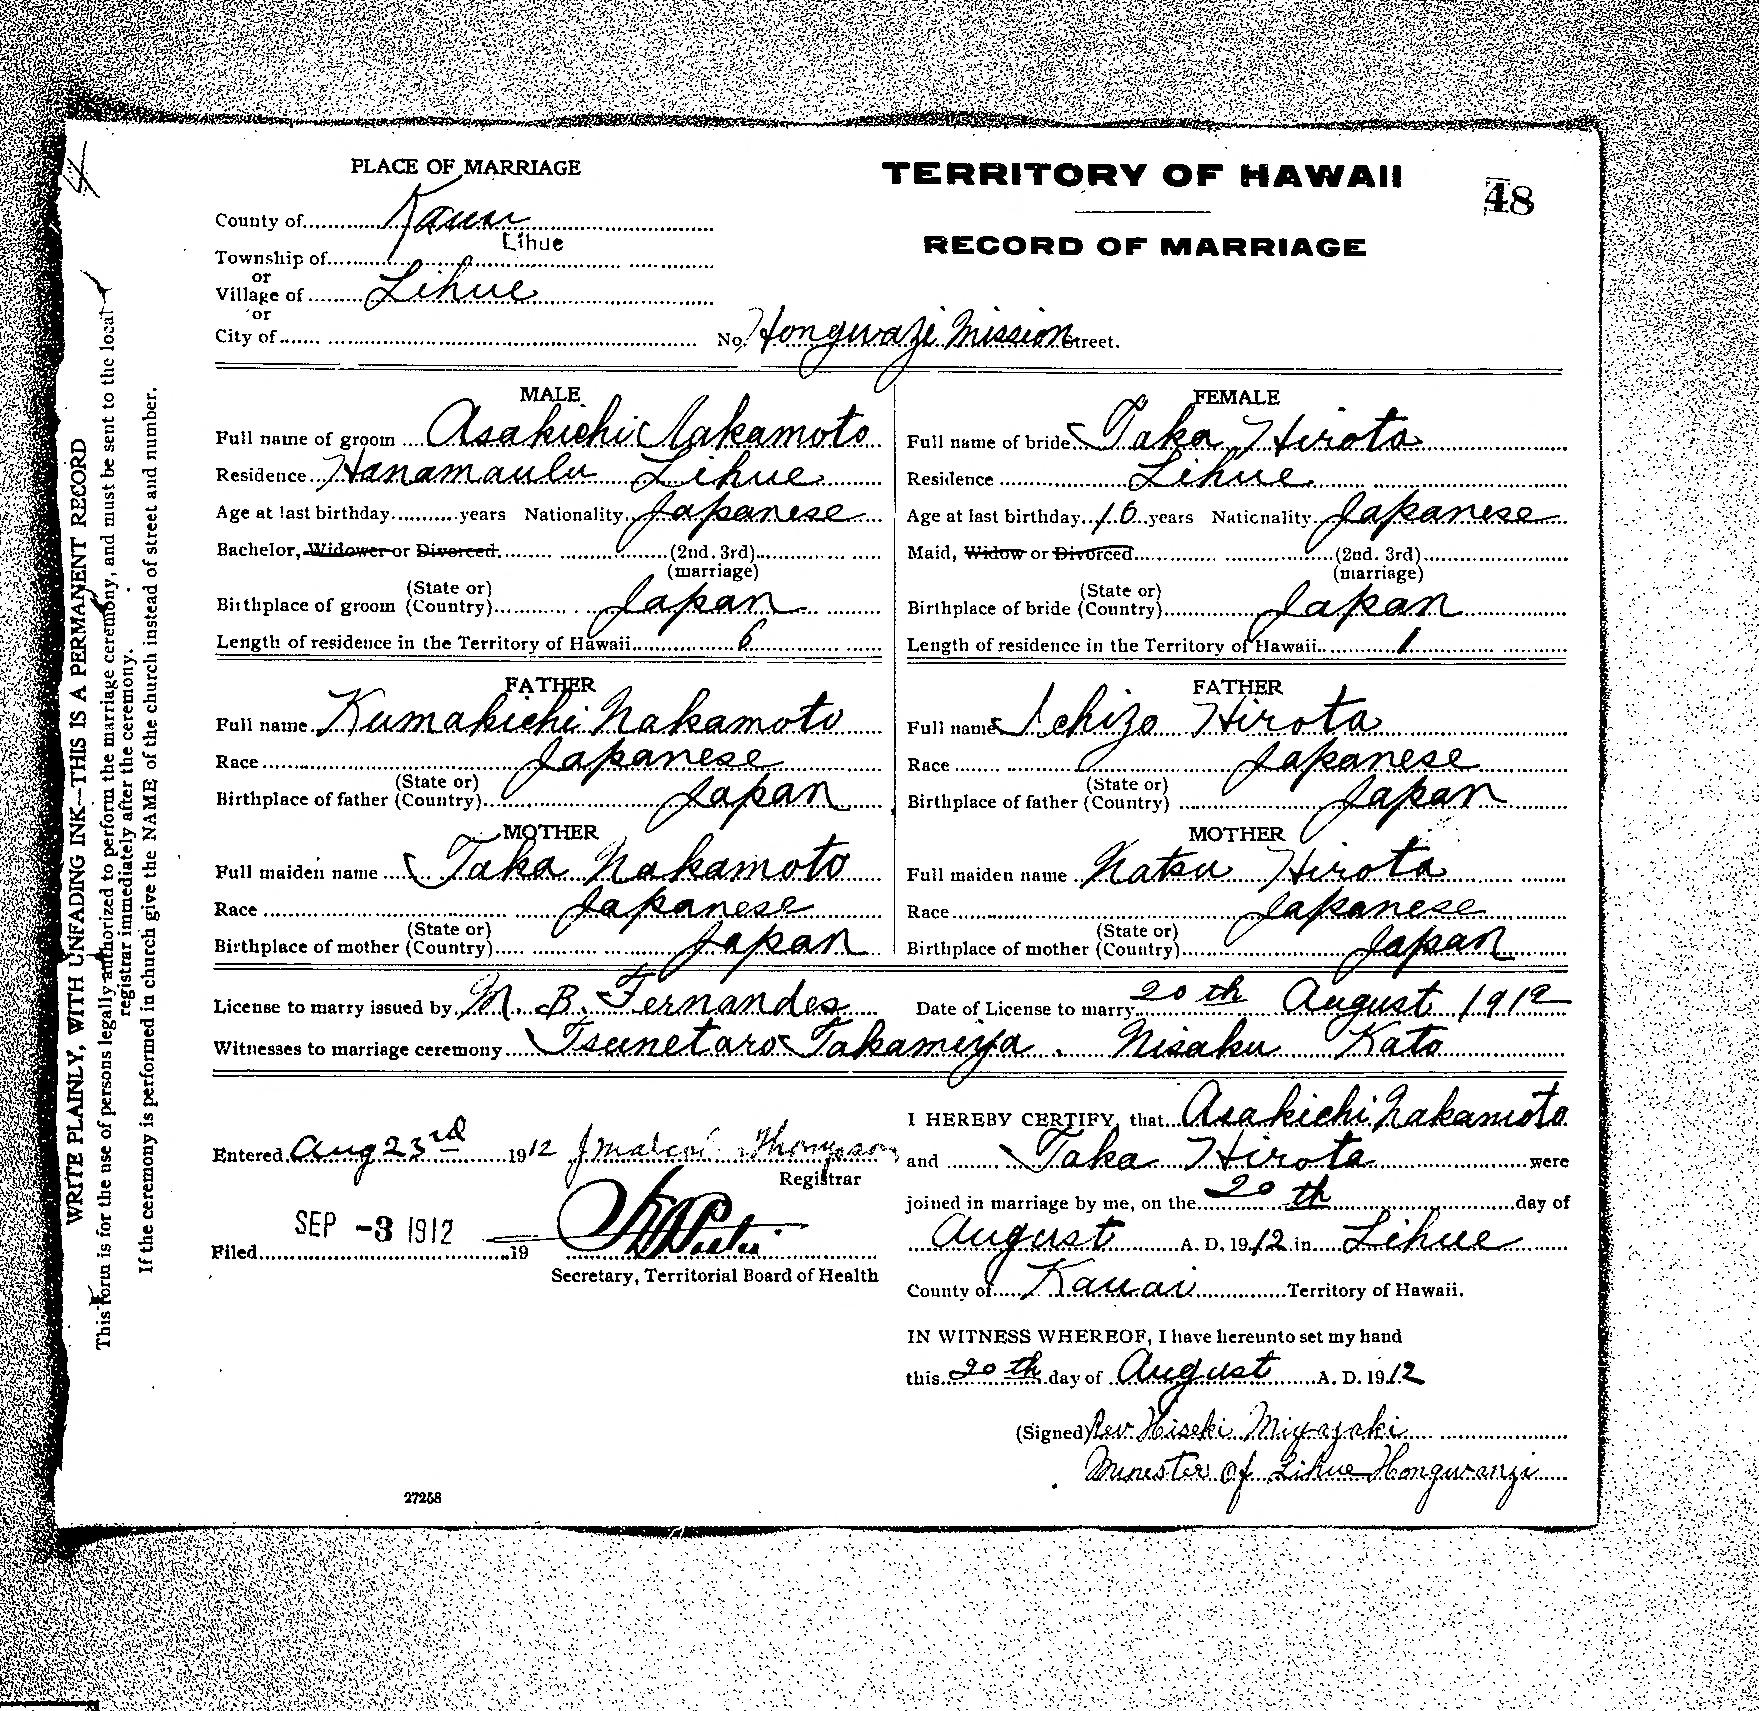 PLACE OF MARRIAGE
TERRITORY OF HAWAII
48
County of Kauai
RECORD OF MARRIAGE
Lihue
Township of
or
Village of Lihue
or
City of No. Hongwazi Mission Street.
MALE
Full name of groom Asakichi Nakamoto
Residence Hanamaulu Lihue
Age at last birthday years Nationality Japanese
Bachelor, Widower or Divorced (2nd. 3rd)
(marriage)
Birthplace of groom (State or) (Country) Japan
Length of residence in the Territory of Hawaii 6
FEMALE
Full name of bride Taka Hirota
Residence Lihue
Age at last birthday 16 years Nationality Japanese
Maid, Widow or Divorced (2nd. 3rd)
(marriage)
Birthplace of bride (State or) (Country) Japan
Length of residence in the Territory of Hawaii 1
FATHER
Full name Kumakichi Nakamoto
Race Japanese
Birthplace of father (State or) (Country) Japan
MOTHER
Full maiden name Taka Nakamoto
Race Japanese
Birthplace of mother (State or) (Country) Japan
FATHER
Full name Ichizo Hirota
Race Japanese
Birthplace of father (State or) (Country) Japan
MOTHER
Full maiden name Natsu Hirota
Race Japanese
Birthplace of mother (State or) (Country) Japan
License to marry issued by M. B. Fernandes Date of License to marry 20th August 1912
Witnesses to marriage ceremony Tsunetaro Takamiya. Nisaku Kato
Entered Aug 23rd 1912 Thompson
Registrar
SEP -3 1912
Filed 19
Secretary, Territorial Board of Health
I HEREBY CERTIFY, that Asakichi Nakamoto
and Taka Hirota were
joined in marriage by me, on the 20th day of
August A. D. 1912 in Lihue
County of Kauai Territory of Hawaii.
IN WITNESS WHEREOF, I have hereunto set my hand
this 20th day of August A. D. 1912
(Signed) Rev. Hiseki Miyazaki
Minister of Lihue Hongwanji
27258
WRITE PLAINLY, WITH UNFADING INK—THIS IS A PERMANENT RECORD
This form is for the use of persons legally authorized to perform the marriage ceremony, and must be sent to the local
registrar immediately after the ceremony.
If the ceremony is performed in church give the NAME of the church instead of street and number.